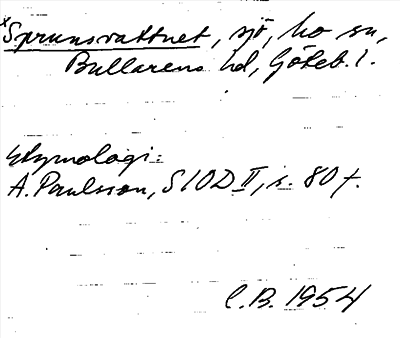 x Sprunsvattnet, sjö, Mo sn,
Bullarens hd, Göteb. l.
Etymologi:
A. Paulsson, SIOD II, s. 80 f.
C.B. 1954